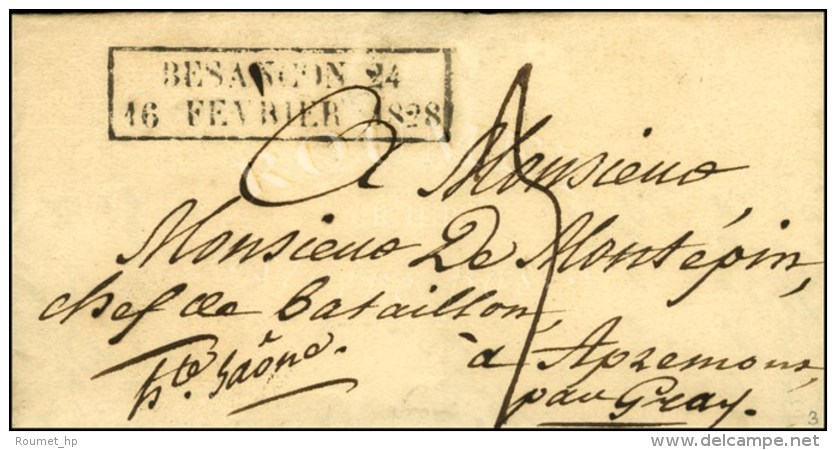 BESANCON 24
16 FEVRIER 1828
A Monsieur
Monsieur De Montépin,
chef de bataillon,
à Apremont,
hte. Saône.
par Gray.
3
Roumet_hp
www.delcampe.net